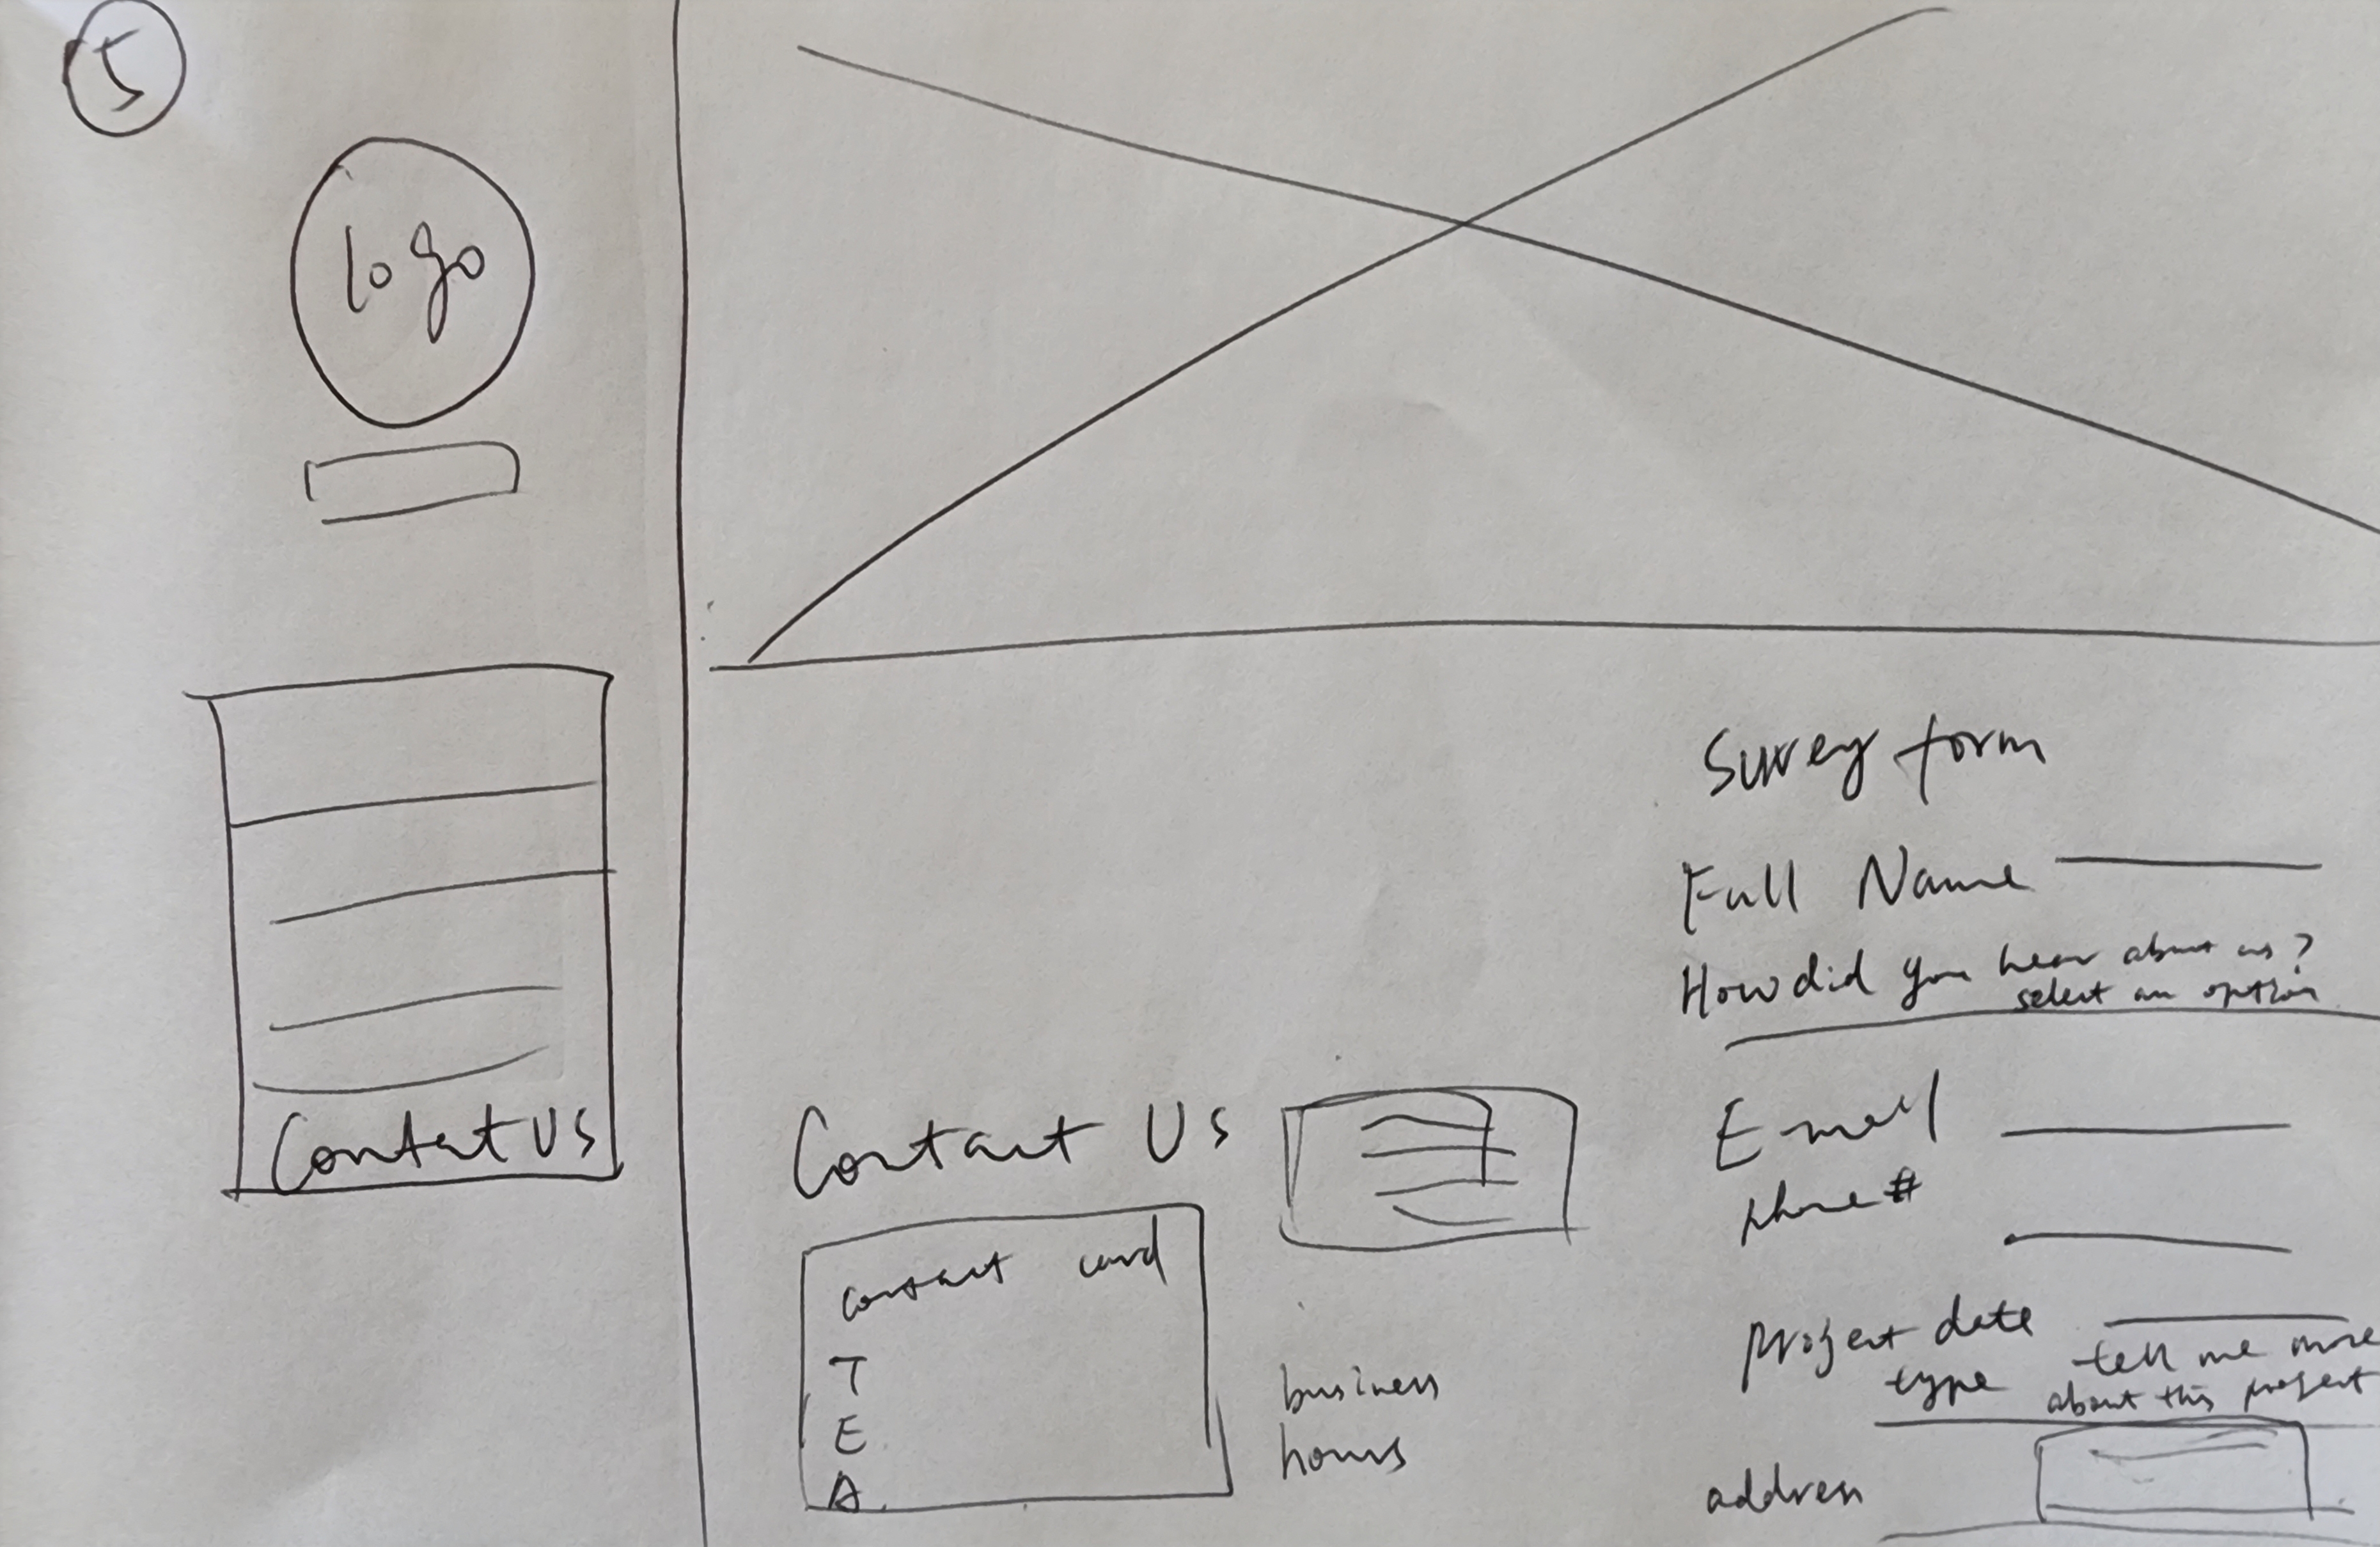 5
logo
Contact US
Contact Us
contact card
T
E
A.
business
hours
Survey form
Full Name
How did you hear about us?
select an option
E-mail
phone #
project date
type
tell me more
about this project
address